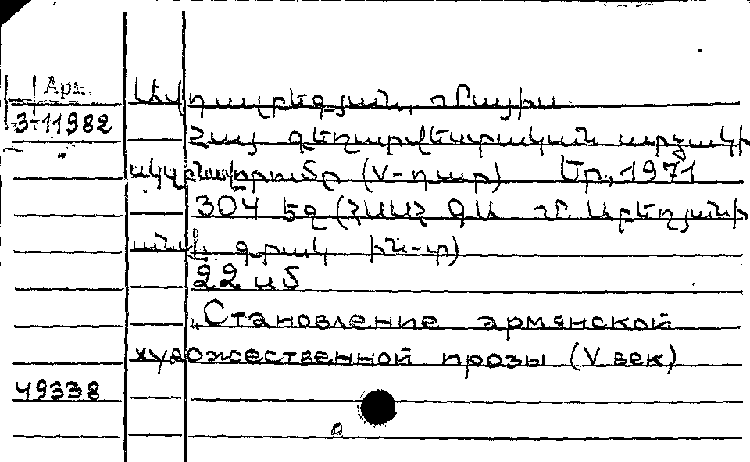 Арм.
3-11982
Հայ գեղարվեստական արձակի
սկզբնավորումը (V-դար) Եր., 1971
304 էջ (ՀՍՍՀ ԳԱ Մ. Աբեղյանի
անվ. գրակ. ին-տ)
22 սմ
„Становление армянской
художественной прозы (V век)
49338